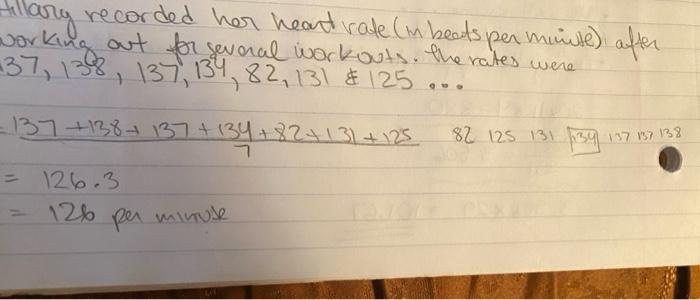 Hillary recorded her heart rate (in beats per minute) after
working out for several workouts. The rates were
137, 138, 137, 134, 82, 131 & 125 ...
= 137 + 138 + 137 + 134 + 82 + 131 + 125 82 125 131 134 137 137 138
7
= 126.3
= 126 per minute